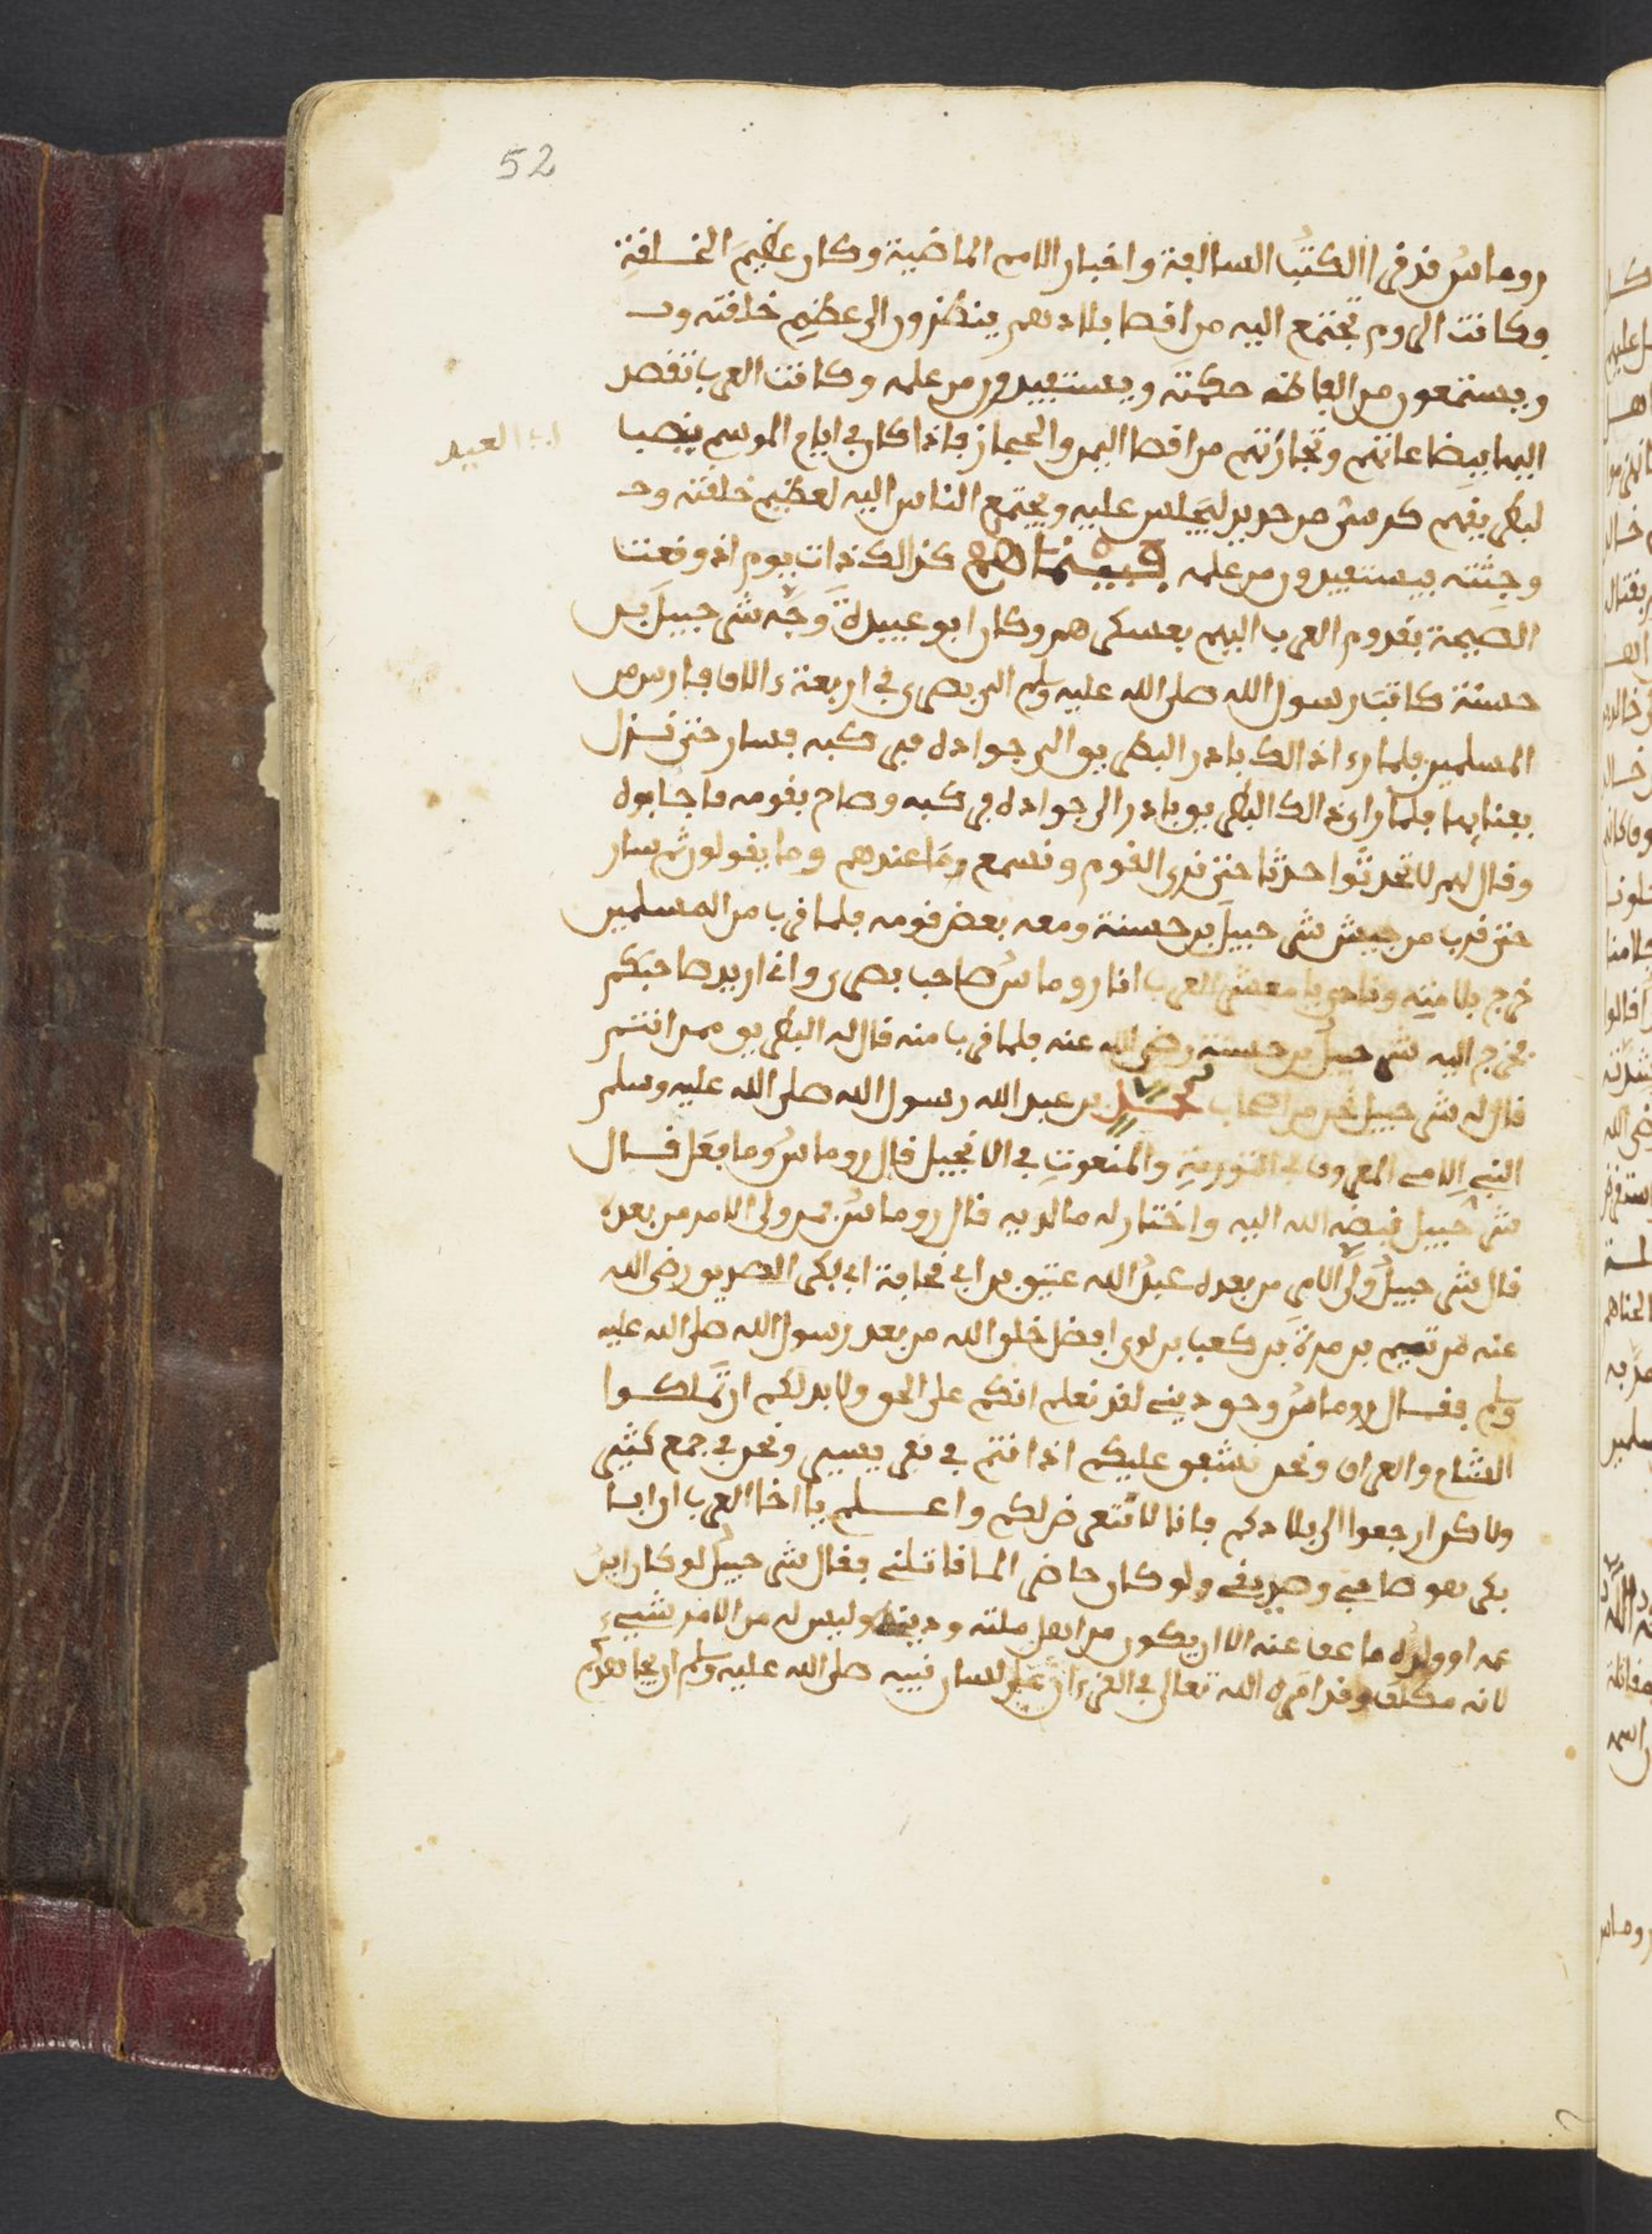 52
روماس قد قرا الكتب السالفة واخبار الامم الماضية وكان عظيم الخلقة
وكانت الروم تجتمع اليه من اقصا بلادهم ينظرون الى عظيم خلقته و
ويستمعون من الفاظه حكمته ويستفيدون من علمه وكانت العرب تقصد
اليها ببضاعاتهم وتجارتهم من اقصا اليمن والحجاز فاذا كان في ايام الموسم ينصبا
العيد
لبطريقهم كرسي من حديد ليجلس عليه ويجتمع الناس اليه لعظيم خلقته و
وجثته يستفيدون من علمه فبينما هم كذالك ذات يوم اذ وقعت
الصيحة بقدوم العرب اليهم بعسكرهم وكان ابو عبيدة وجه شرحبيل بن
حسنة كاتب رسول الله صلى الله عليه وسلم الى بصرى في اربعة ءالاف فارس من
المسلمين فلما رءا ذالك بادر البطريق الى جواده فركبه فسار حتى نزل
بفنايها فلما راى ذالك البطريق بادر الى جواده فركبه وصاح بقومه فاجابوه
وقال لهم لا تحدثوا حدثا حتى ندى القوم ونسمع وما عندهم وما يقولون ثم سار
حتى قرب من جيش شرحبيل بن حسنة ومعه بعض قومه فلما قرب من المسلمين
خرج بلامته ونادى يا معشر العرب انا روماس صاحب بصرى وانا اريد صاحبكم
فخرج اليه شرحبيل بن حسنة رضي الله عنه فلما قرب منه قال له البطريق ممن انتم
قال له شرحبيل نحن من اصحاب محمد بن عبد الله رسول الله صلى الله عليه وسلم
النبي الامي المعروف في التورية والمنعوت في الانجيل قال روماس وما فعل قال
شرحبيل قبضه الله اليه واختار له ما لديه قال روماس فمن ولى الامر من بعده
قال شرحبيل ولى الامر من بعده عبد الله عتيق بن ابي قحافة ابي بكر الصديق رضي الله
عنه من تيم بن مرة بن كعب بن لوى افضل خلق الله من بعد رسول الله صلى الله عليه
وسلم فقال روماس وحق ديني لقد نعلم انكم على الحق ولا بد لكم ان تملكوا
الشام والعراق ونحن نشفق عليكم اذ انتم في نفر يسير ونحن في جمع كثير
ولاكن ارجعوا الى بلادكم فانا لا نتعرض لكم واعلم يا اخا العرب ان ابا
بكر هو صاحبي وصديقي ولو كان حاضرا لما قاتلني فقال شرحبيل لو كان ابن
عمه او ولده ما عفا عنه الا ان يكون من اهل ملته ودينه وليس له من الامر شيء
لانه مكلف وقد امره الله تعالى في القرءان على لسان نبيه صلى الله عليه وسلم ان يجاهدكم